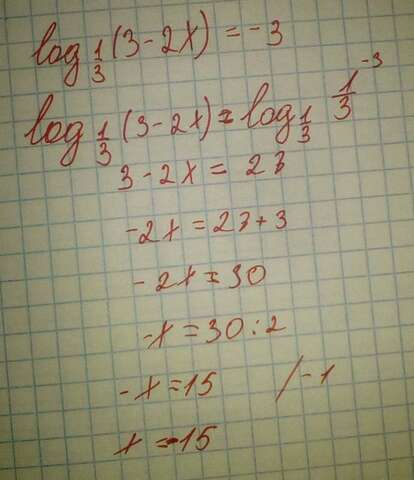 log_{1/3}(3-2x) = -3
log_{1/3}(3-2x) = log_{1/3} \frac{1}{3}^{-3}
3-2x = 27
-2x = 27+3
-2x = 30
-x = 30:2
-x = 15 /-1
x = -15